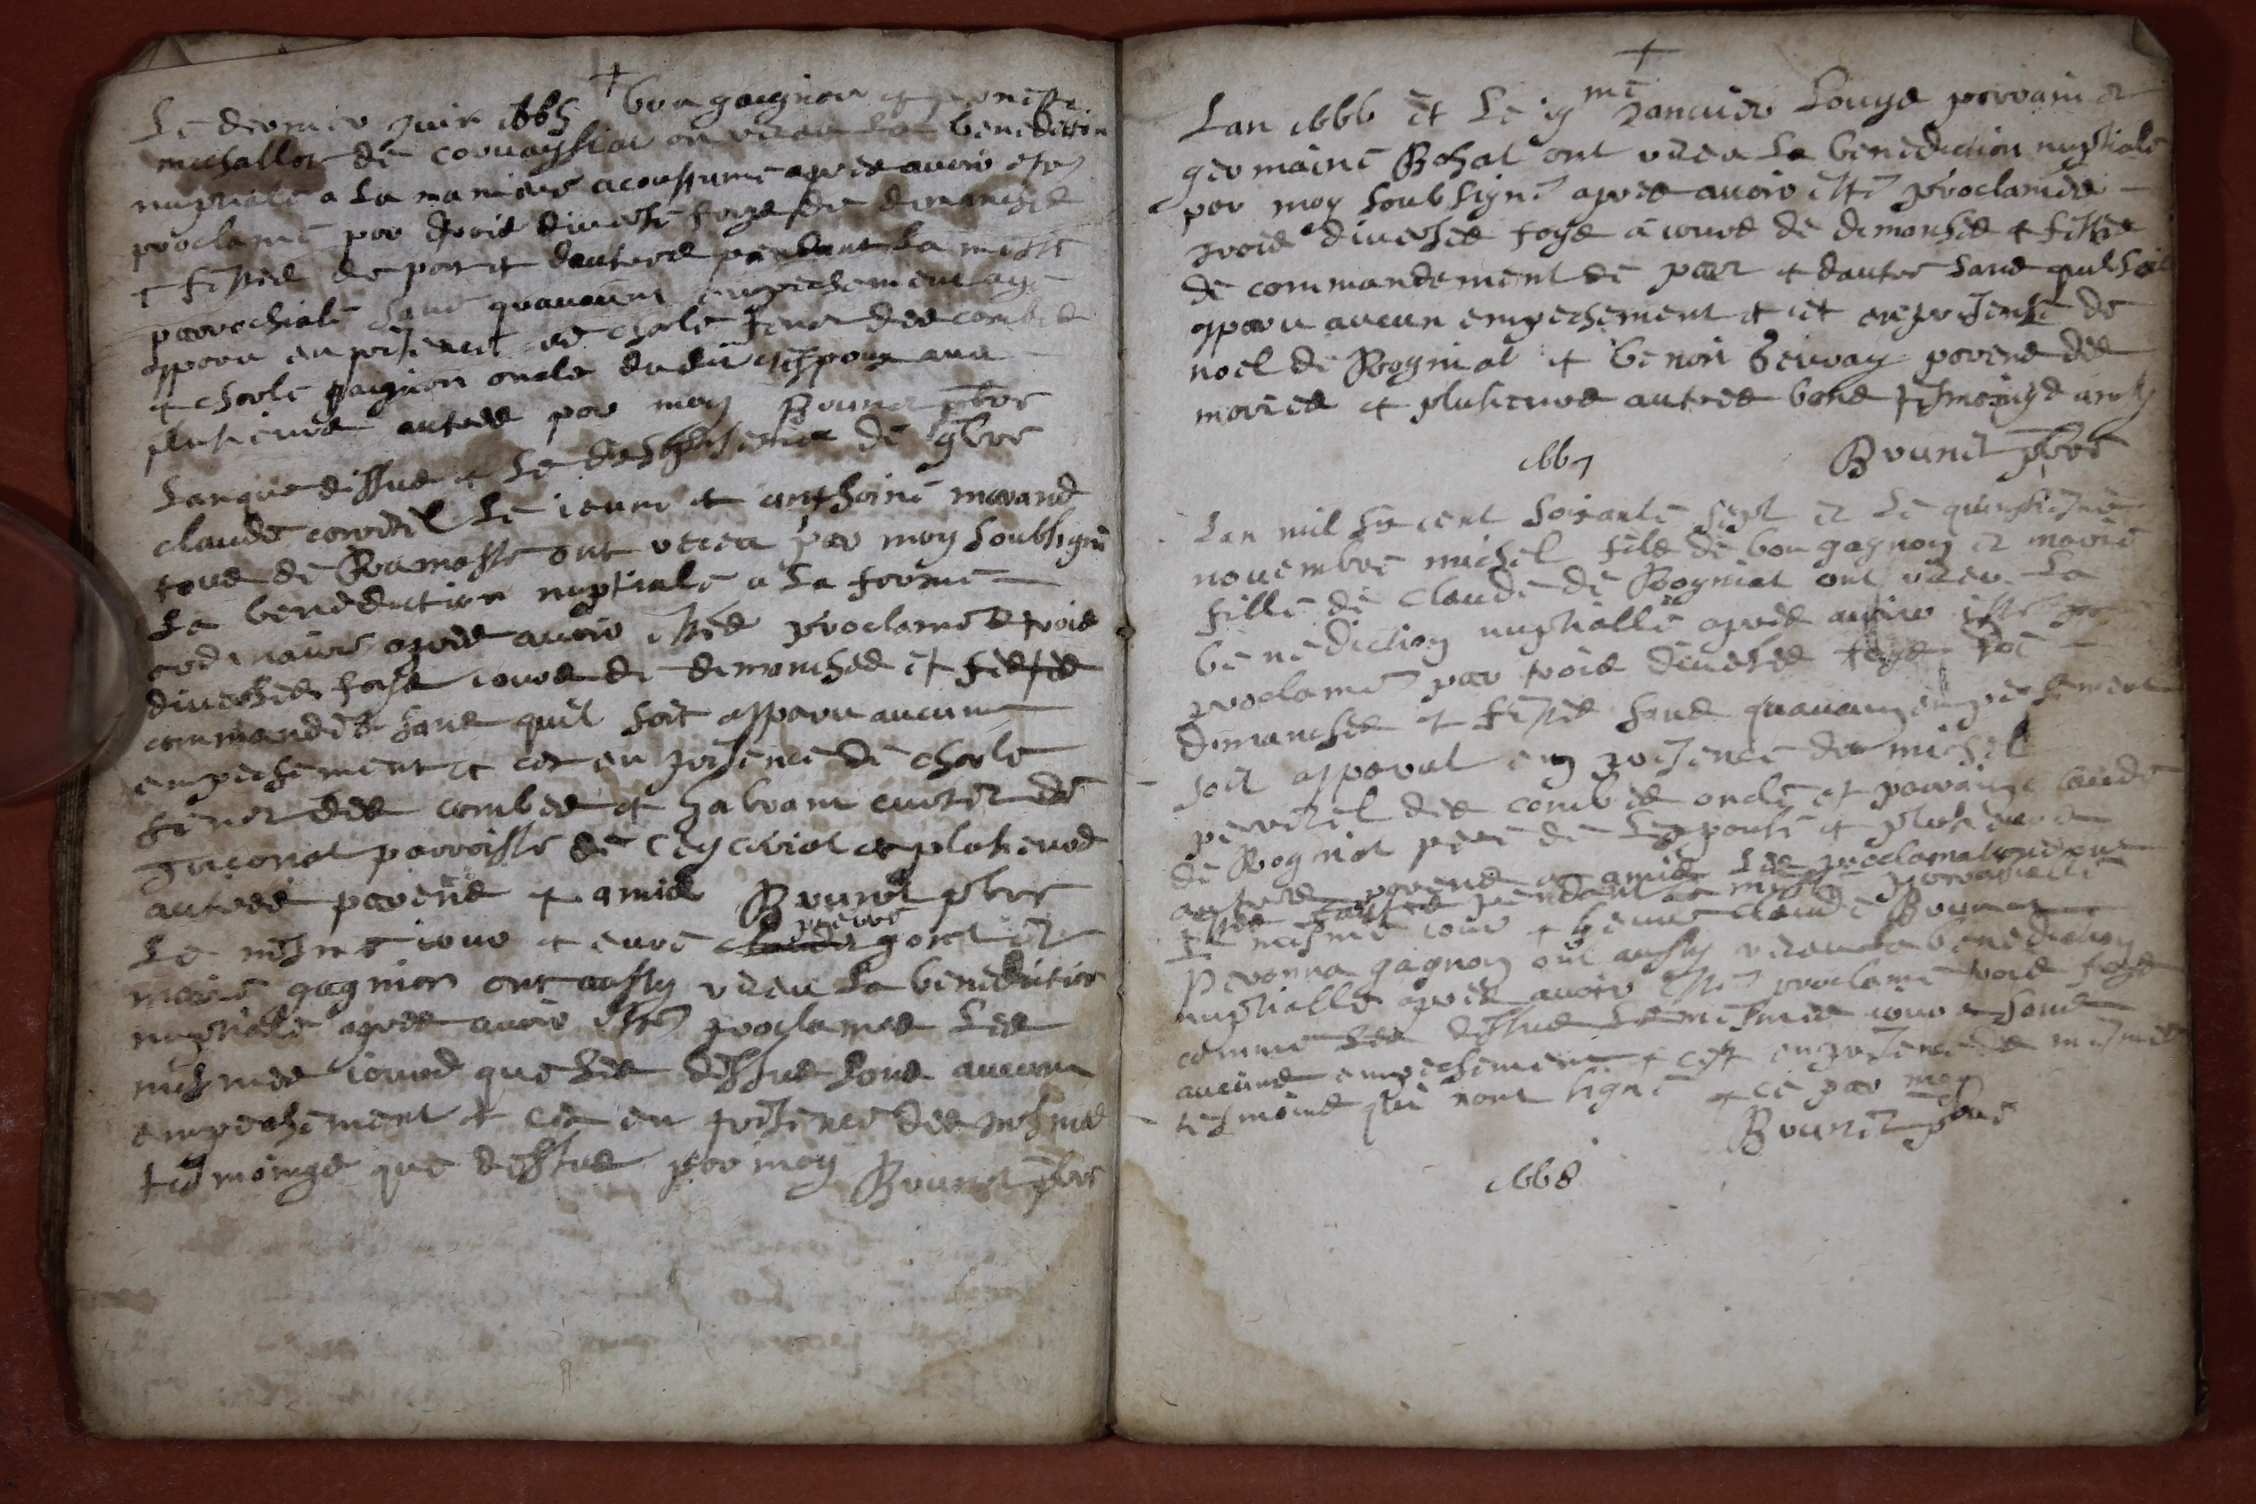 +
Le dernier juin 1665 bon gaignon et
michallet de corvayssiat on receu la benediction
nuptiale a la maniere acoustume apres avoir este
proclame par trois diverse foyes de dimanches
et festes de part et dautres pendant la messe
parrochiale sans quaucun empechement aye
apparu en presence de charle fenor des combes
et charle gagnion oncle dudit espoux avec
plusieurs autres par moy Brunet pbre
Lan que dessus et le de
claude le jeune et anthoine morand
tous de Ramasse ont receu par moy soubsigne
La benediction nuptiale a la forme
ordinaire apres avoir estes proclames trois
diverses foyse jours de dimanches et festes
commandes sans quil soit apparu aucun
empechement et cet en presence de charle
fenor des combes et
parroisse de Ceyseriat et plusieurs
autres parens et amis Brunet pbre
Le mesme jour et eure claude pierre et
marie gagnion ont aussy receu la benediction
nuptiale apres avoir esté proclames les
mesmes jours que les dessus sans aucun
empechement et cet en presence des mesmes
tesmoings que dessus par moy Brunet pbre
+
Lan 1666 et le ij me Janvier Louys parrain et
germaine Bohat ont receu la benediction nuptiale
par moy soubsigné apres avoir esté proclamés
trois diverses foys a jours de dimanches et festes
de commandement de part et dautre sans quil soit
apparu aucun empechement et cet en presence de
noel de Rogniat et benoit parens des
maries et plusieurs autres bons tesmoings
Brunet pbre
1667
Lan mil six cent soixante sept et le quinsieme
novembre michel fils de bon gagnon et marie
fille de claude de Rogniat ont receu la
benediction nuptialle apres avoir esté
proclamé par trois diverses foys
dimanches et festes sans quaucung empechement
soit apparut en presence de michel
perret des combes oncle et parrain claude
de Rogniat pere de lespouse et plusieurs
autres parens et amis Les proclamations ont
estés faittes pendant la messe parroicielle
Le mesme jour et heure claude Brunet
Pevonna gagnon ont aussy receu la benediction
nuptialle apres avoir esté proclamé trois foys
comme les dessus le mesmes jour sans
aucuns empechement et cest en presence de mesmes
tesmoins qui nont signé et ce par moy
Brunet pbre
1668